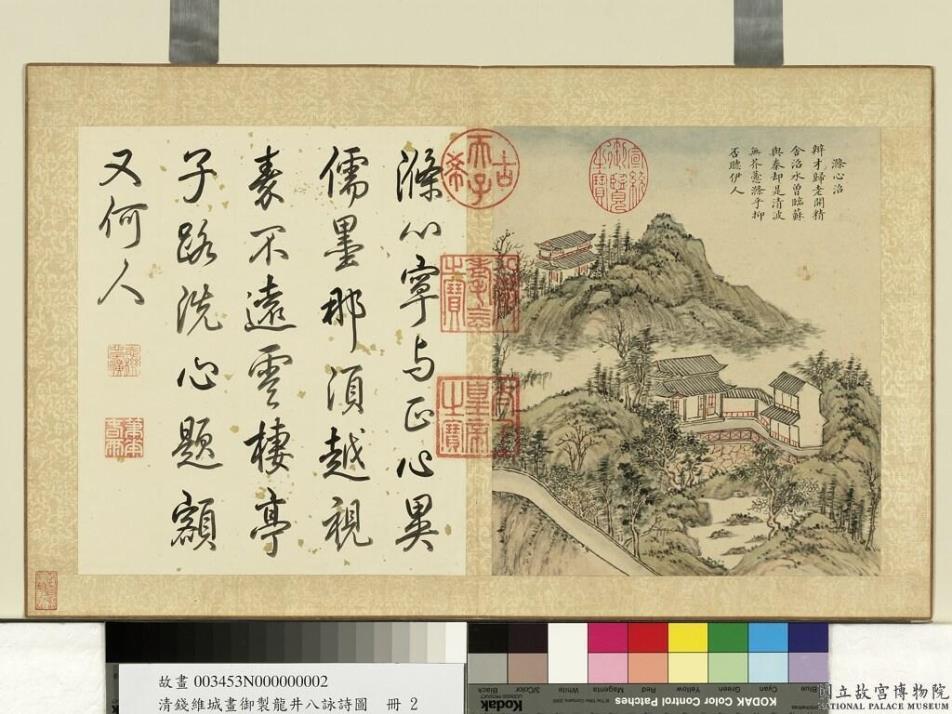 滌心沼
辯才歸老開精
舍沼水曾臨蘇
與秦却是清波
無芥蔕滌乎抑
否聽伊人
滌心寧与正心異
儒墨那須越視
秦不遠雲棲亭
子路洗心題額
又何人
古
天子
希
宣統
御覽
之寶
故畫 003453N000000002
清錢維城畫御製龍井八詠詩圖 冊 2
Kodak
KODAK Color Control Patches
Black
3/Color
White
Magenta
Red
Yellow
Green
Cyan
Blue
國立故宮博物院
NATIONAL PALACE MUSEUM